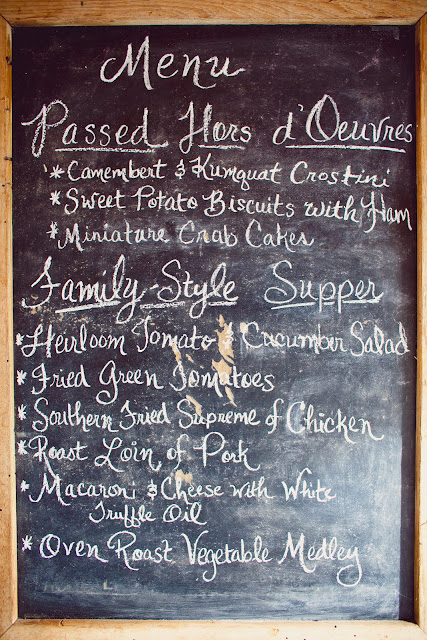 Menu
Passed Hors d'Oeuvres
* Camembert & Kumquat Crostini
* Sweet Potato Biscuits with Ham
* Miniature Crab Cakes
Family-Style Supper
* Heirloom Tomato & Cucumber Salad
* Fried Green Tomatoes
* Southern Fried Supreme of Chicken
* Roast Loin of Pork
* Macaroni & Cheese with White
Truffle Oil
* Oven Roast Vegetable Medley